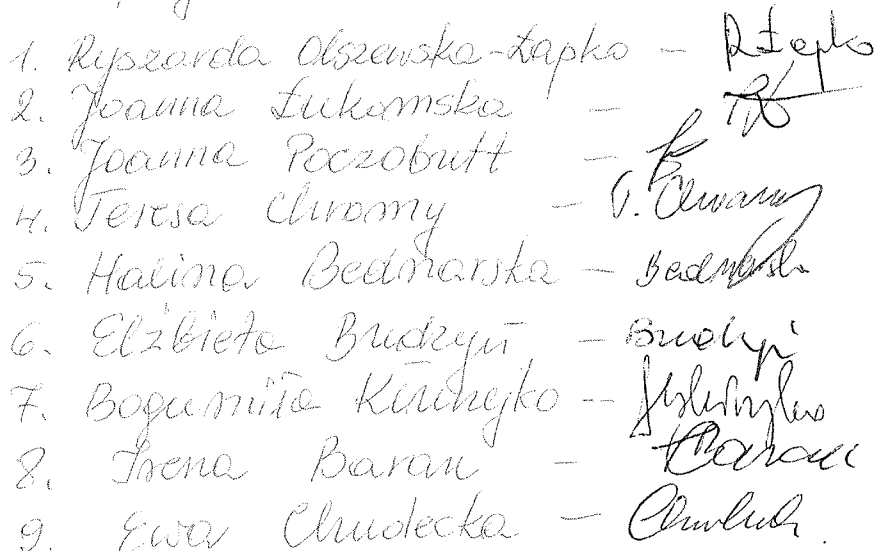 1. Ryszarda Olszewska-Łapko - RŁapko
2. Joanna Łukomska -
3. Joanna Poczobutt -
4. Teresa Chromy - T. Chromy
5. Halina Bednarska - Bednarska
6. Elżbieta Brudzyń -
7. Bogumiła -
8. Irena Baran - Baran
9. Ewa Chudecka -